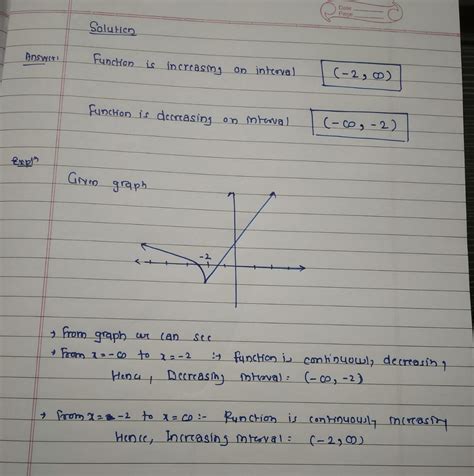 Date
Page
Solution
Answer: Function is increasing on interval (-2, ∞)
Function is decreasing on interval (-∞, -2)
Expln
Given graph
-2
→ From graph we can see
→ From x=-∞ to x=-2 :→ Function is continuously decreasing
Hence, Decreasing interval: (-∞, -2)
→ From x=-2 to x=∞ :- Function is continuously increasing
Hence, Increasing interval: (-2, ∞)